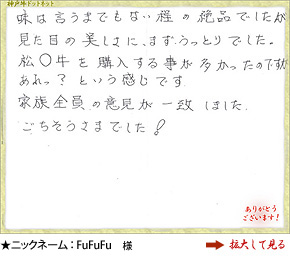 神戸牛ドットネット
味は言うまでもない程の絶品でしたが
見た目の美しさに、まず、うっとりでした。
松〇牛を購入する事が多かったのですが
あれっ？という感じです。
家族全員の意見が一致しました。
ごちそうさまでした！
ありがとう
ございます！
★ニックネーム：FuFuFu 様
拡大して見る